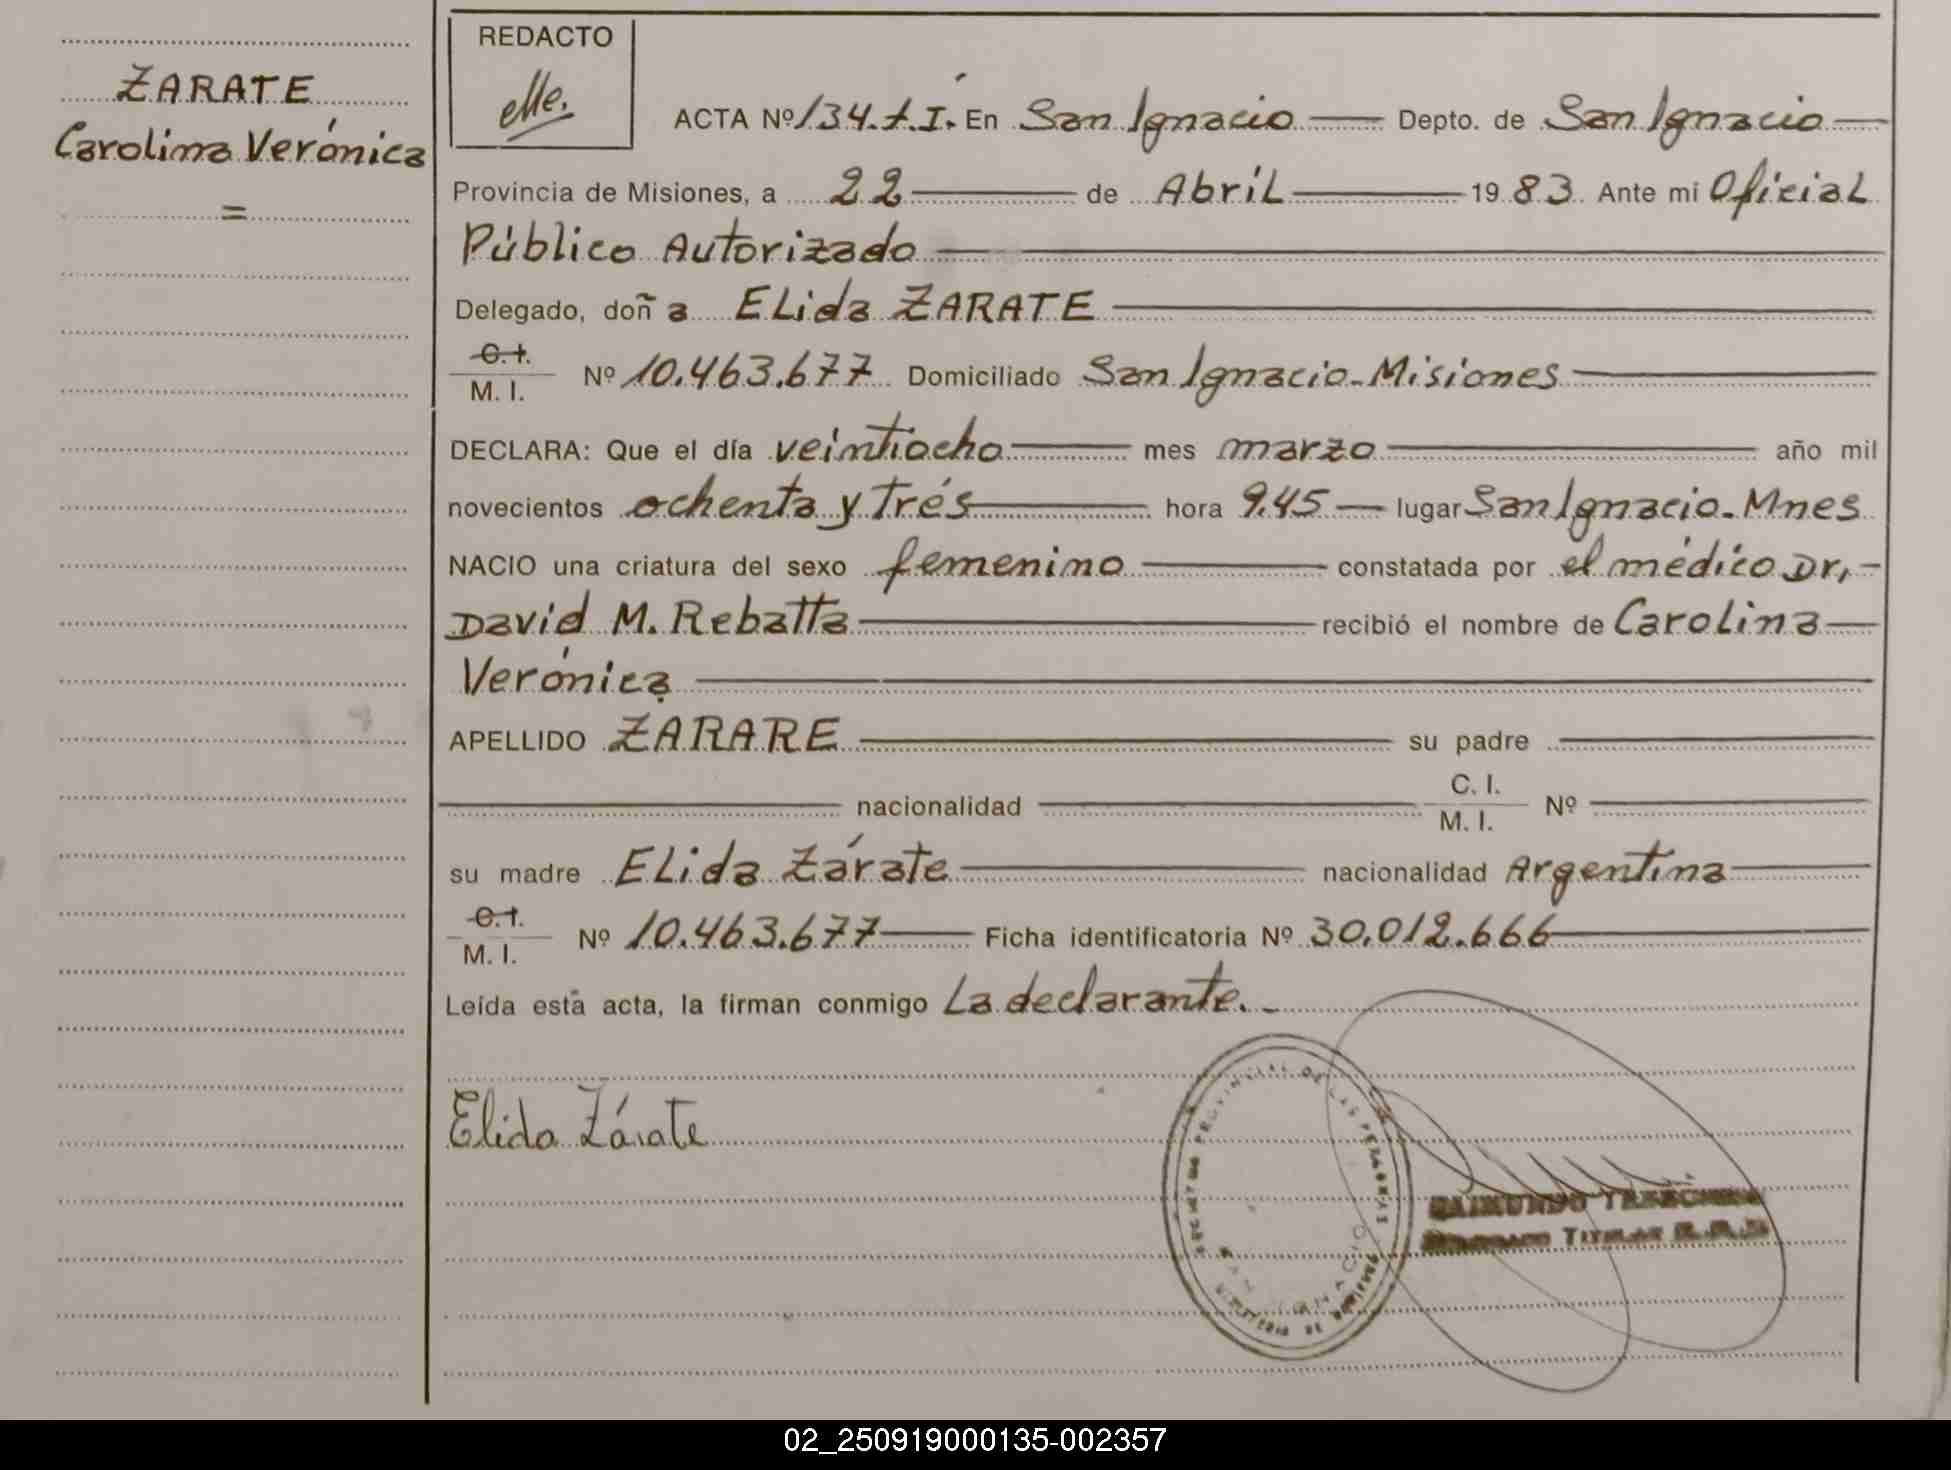 ZARATE
Carolina Verónica
=
REDACTO
ACTA Nº 134.t.I. En San Ignacio Depto. de San Ignacio
Provincia de Misiones, a 22 de Abril 1983. Ante mi Oficial
Público Autorizado
Delegado, doña Elida ZARATE
C.I.
M. I. Nº 10.463.677 Domiciliado San Ignacio-Misiones
DECLARA: Que el día veintiocho mes marzo año mil
novecientos ochenta y trés hora 9.45 lugar San Ignacio-Mnes
NACIO una criatura del sexo femenino constatada por el médico Dr,-
David M. Rebatta recibió el nombre de Carolina
Verónica
APELLIDO ZARARE su padre
nacionalidad C. I.
M. I. Nº
su madre Elida Zárate nacionalidad Argentina
C.I.
M. I. Nº 10.463.677 Ficha identificatoria Nº 30.012.666
Leída esta acta, la firman conmigo La declarante.-
Elida Zárate
PROVINCIAL DE LAS PERSONAS
SAN IGNACIO
MINISTERIO DE GOBIERNO
RAIMUNDO
TITULAR
02_250919000135-002357